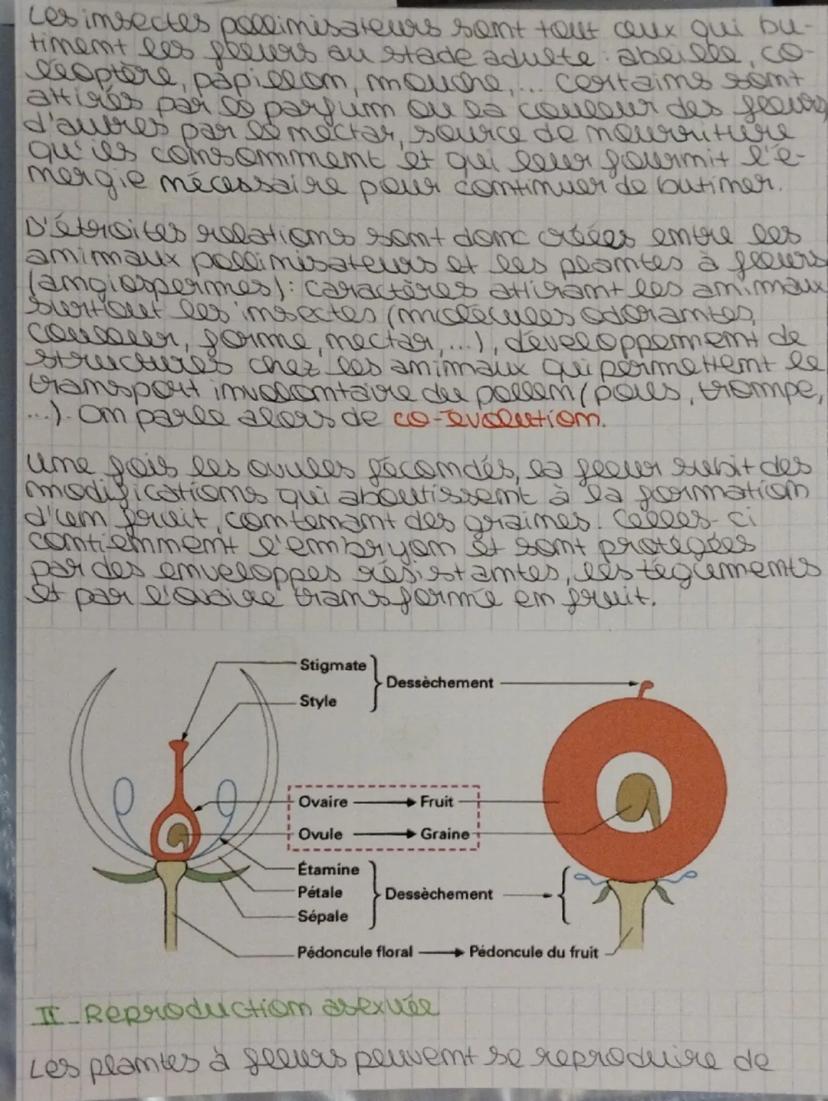 Les insectes pollinisateurs sont tout ceux qui bu-
tinent les fleurs au stade adulte : abeille, co-
léoptère, papillon, mouche,... certains sont
attirés par le parfum ou la couleur des fleurs,
d'autres par le nectar, source de nourriture
qu'ils consomment et qui leur fournit l'é-
nergie nécessaire pour continuer de butiner.
D'étroites relations sont donc créées entre les
animaux pollinisateurs et les plantes à fleurs
(angiospermes) : caractères attirant les animaux
surtout les insectes (molécules odorantes,
couleur, forme, nectar,...), développement de
structures chez les animaux qui permettent le
transport involontaire du pollen (poils, trompe,
...). On parle alors de co-évolution.
Une fois les ovules fécondés, la fleur subit des
modifications qui aboutissent à la formation
d'un fruit, contenant des graines. Celles-ci
contiennent l'embryon et sont protégées
par des enveloppes résistantes, les téguments
et par l'ovaire transformé en fruit.
Stigmate
Style
Dessèchement
Ovaire → Fruit
Ovule → Graine
Étamine
Pétale
Sépale
Dessèchement
Pédoncule floral → Pédoncule du fruit
II - Reproduction asexuée
Les plantes à fleurs peuvent se reproduire de